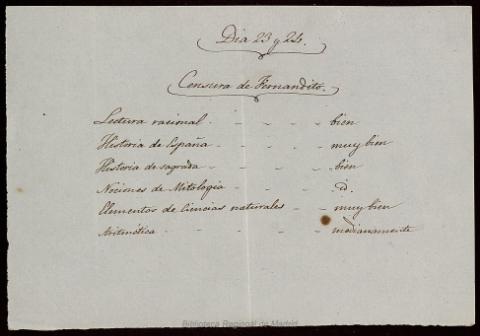 Dia 23 y 24.
Censura de Fernandito.
Lectura racional. - - - - bien
Historia de España - - - - muy bien
Historia de sagrada - - - - bien
Nociones de Mitologia - - - - id.
Elementos de Ciencias naturales - - muy bien
Aritmética - - - - - medianamente
Biblioteca Regional de Madrid